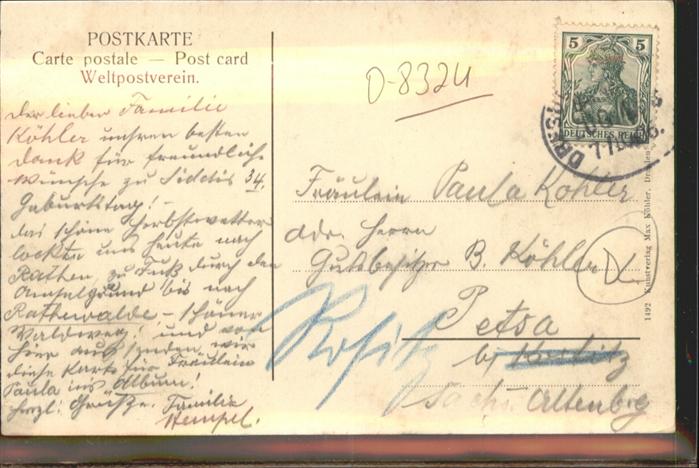 POSTKARTE
Carte postale — Post card
Weltpostverein.
D-8324
5 5
DEUTSCHES REICH
Der lieben Familie
Köhler unsren besten
Dank für freundliche
Wünsche zu 34.
Geburtstag! –
Das schöne Herbstwetter
lockte uns heute nach
Rathen, zu Fuß durch den
Amselgrund bis nach
Rathewalde – schöner
Waldweg! und von
hier aus senden wir
diese Karte für Fräulein
Paula ins Album!
Herzl. Grüße. Familie
Hempel.
Fräulein Paula Köhler
adr. Herrn
Gutsbesitzer B. Köhler
Petsa
b/
Rositz
Sachs. Altenburg
1492 Kunstverlag Max Köhler, Dresden